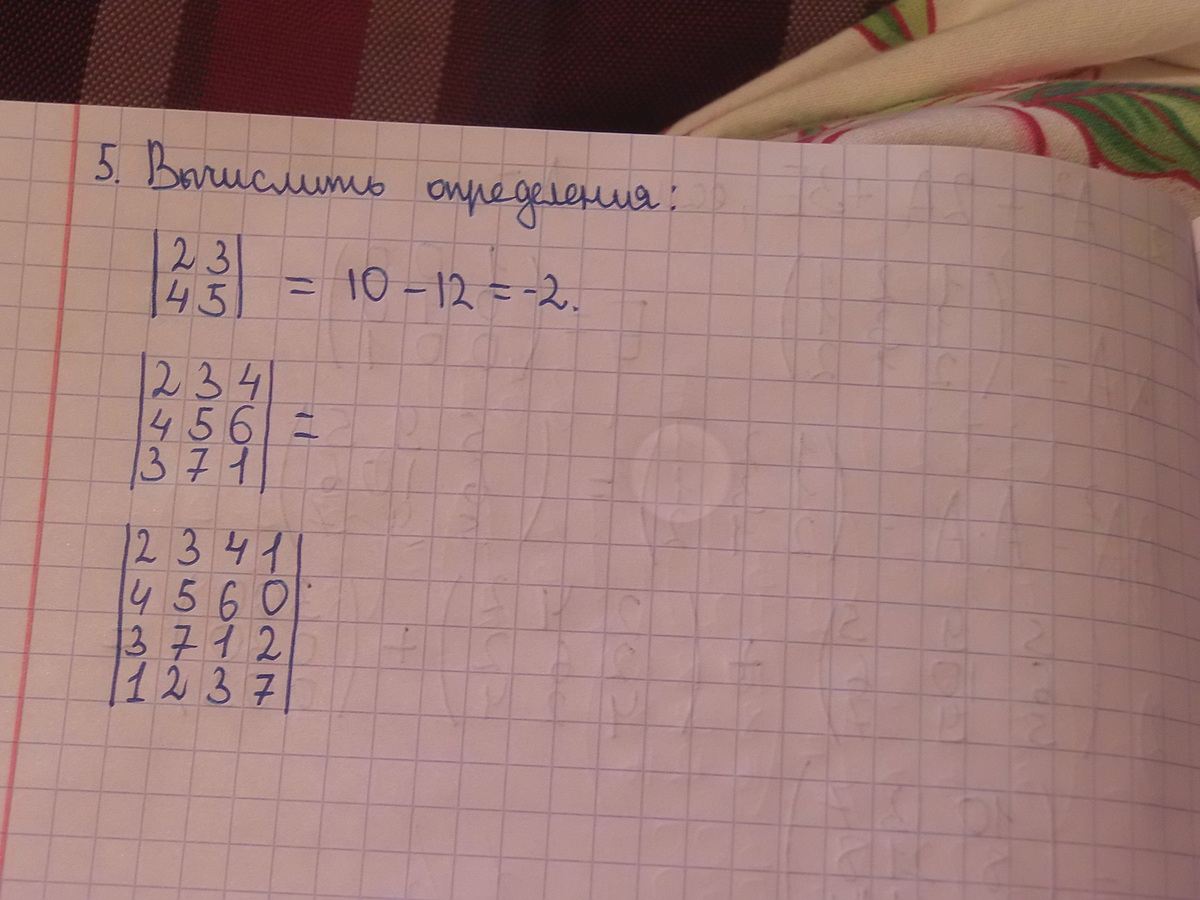 5. Вычислить определения:
|2 3|
|4 5| = 10 - 12 = -2.
|2 3 4|
|4 5 6| =
|3 7 1|
|2 3 4 1|
|4 5 6 0|
|3 7 1 2|
|1 2 3 7|